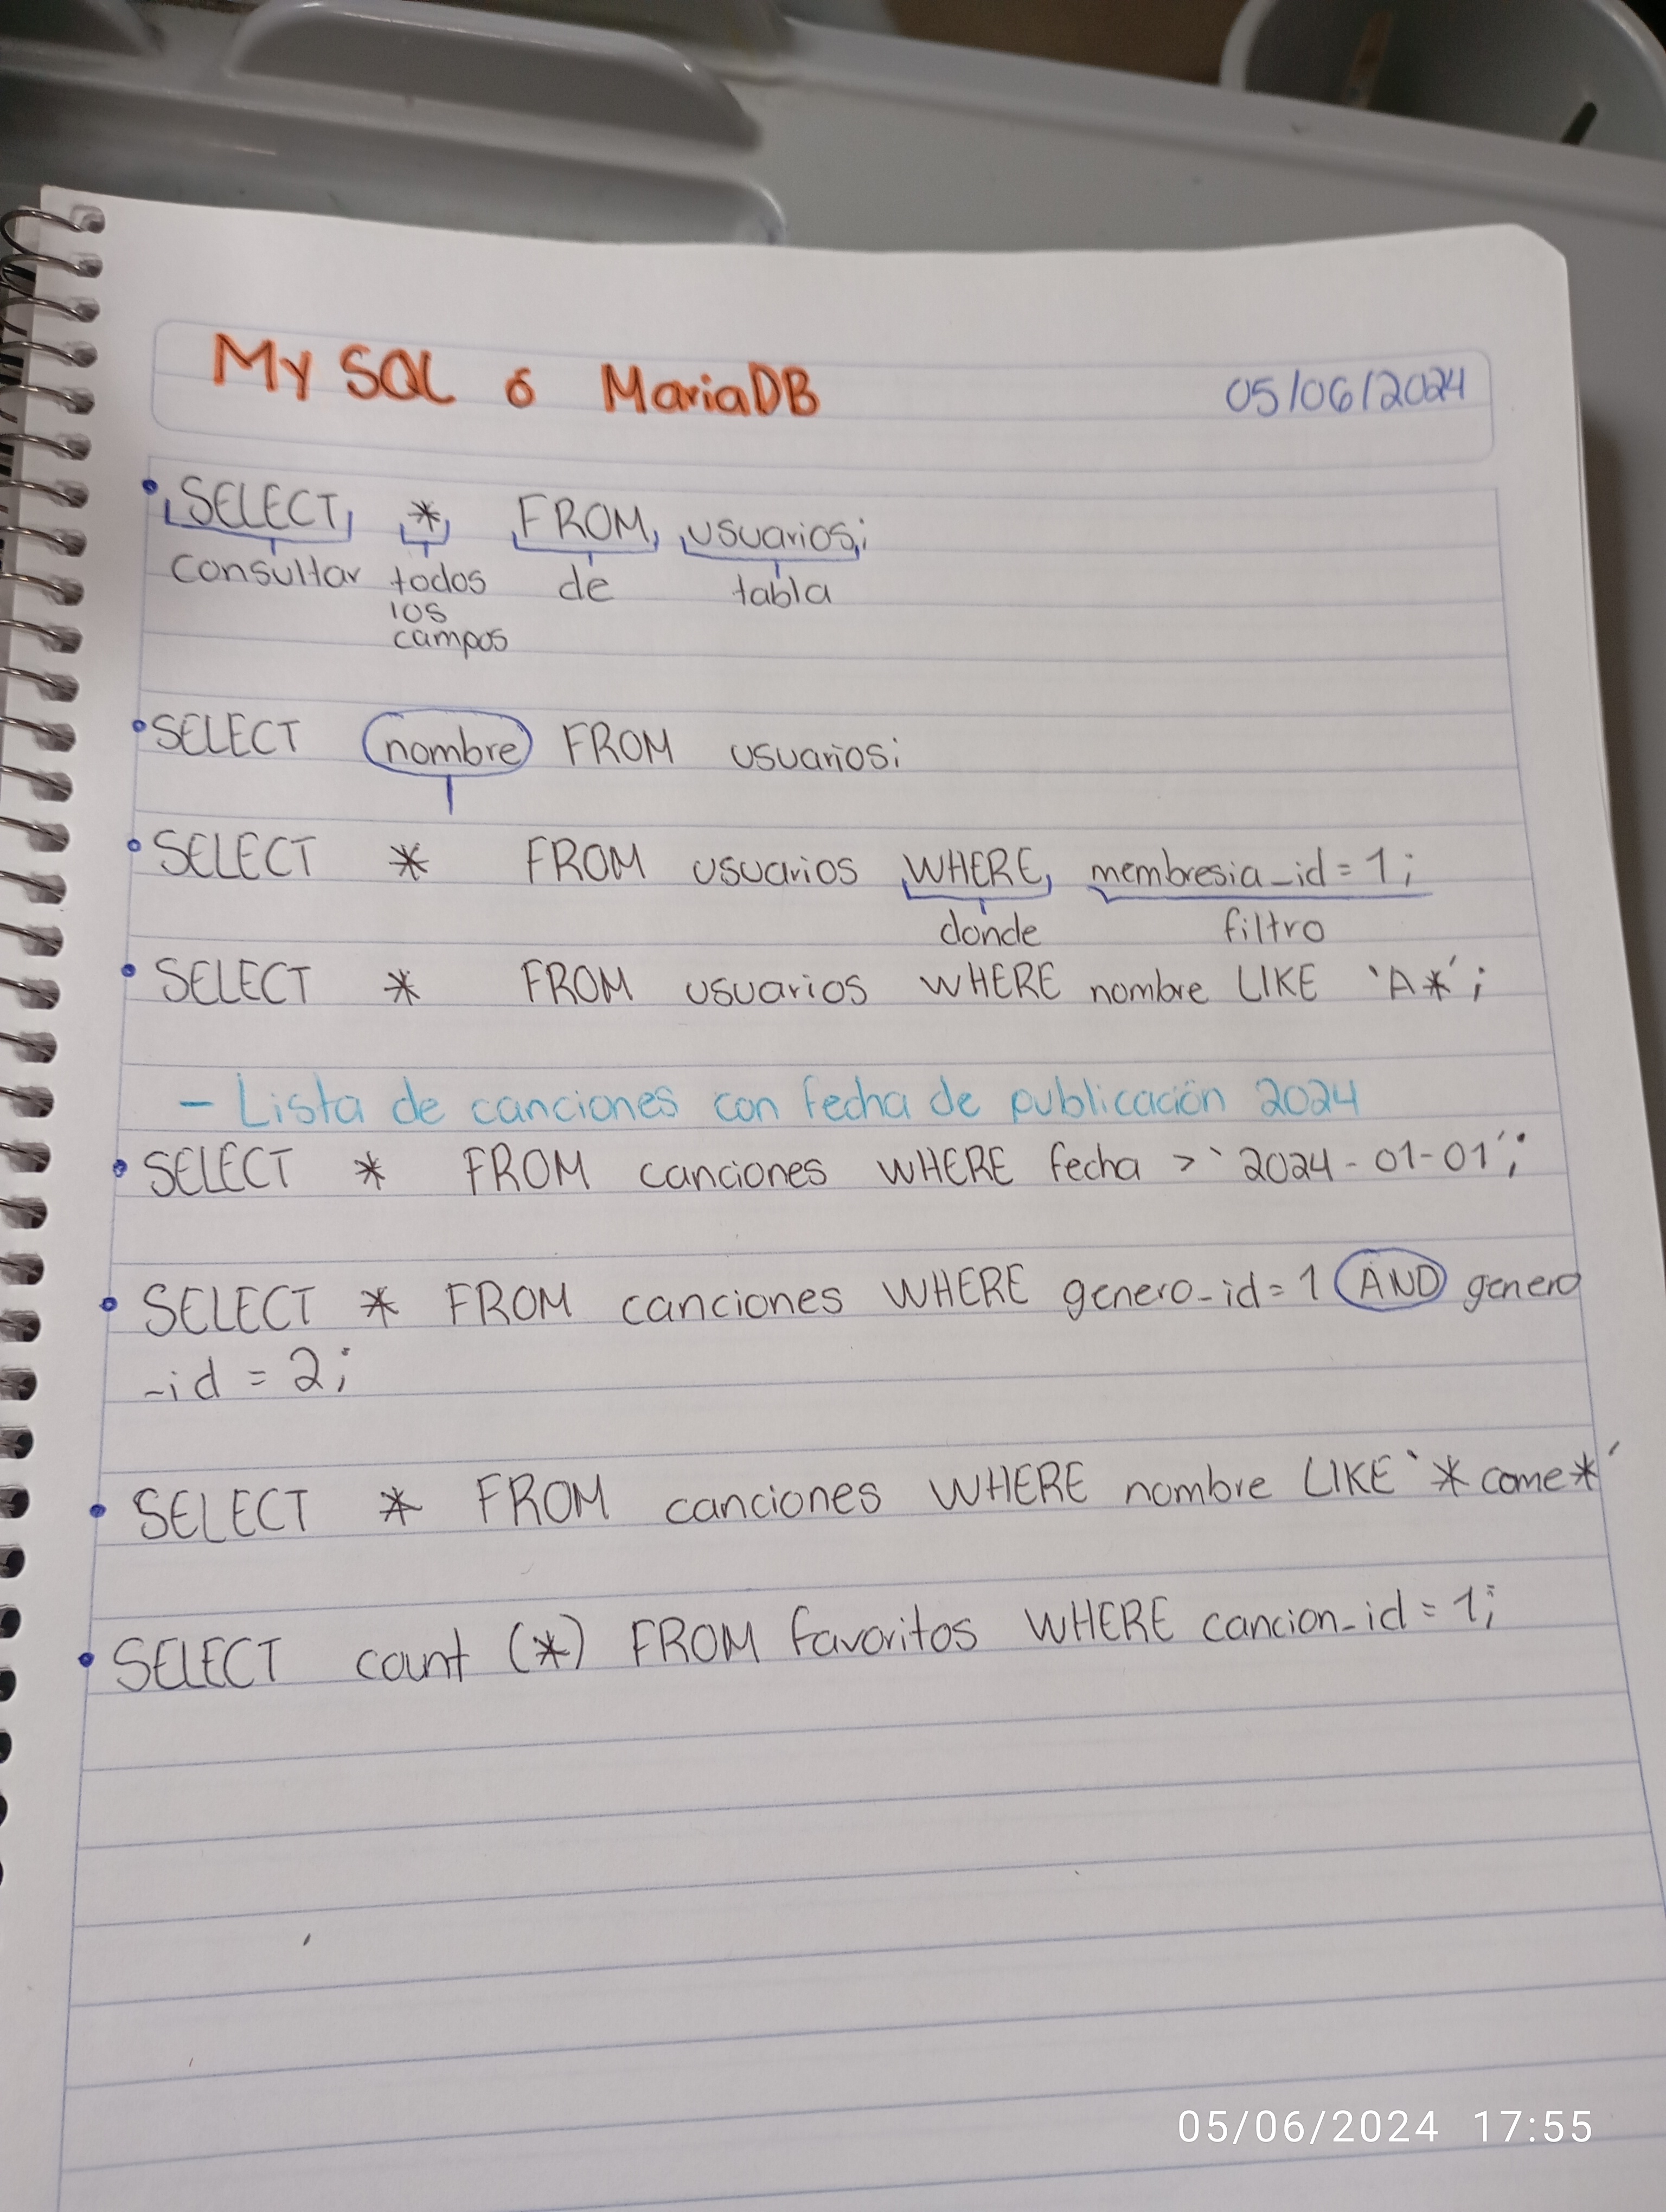 My SQL ó MariaDB 05/06/2024
SELECT * FROM usuarios;
consultar todos de tabla
los
campos
SELECT nombre FROM usuarios;
SELECT * FROM usuarios WHERE membresia_id = 1;
donde filtro
SELECT * FROM usuarios WHERE nombre LIKE 'A*';
- Lista de canciones con fecha de publicación 2024
SELECT * FROM canciones WHERE fecha > '2024-01-01';
SELECT * FROM canciones WHERE genero_id = 1 AND genero
_id = 2;
SELECT * FROM canciones WHERE nombre LIKE '*come*'
SELECT count (*) FROM favoritos WHERE cancion_id = 1;
05/06/2024 17:55